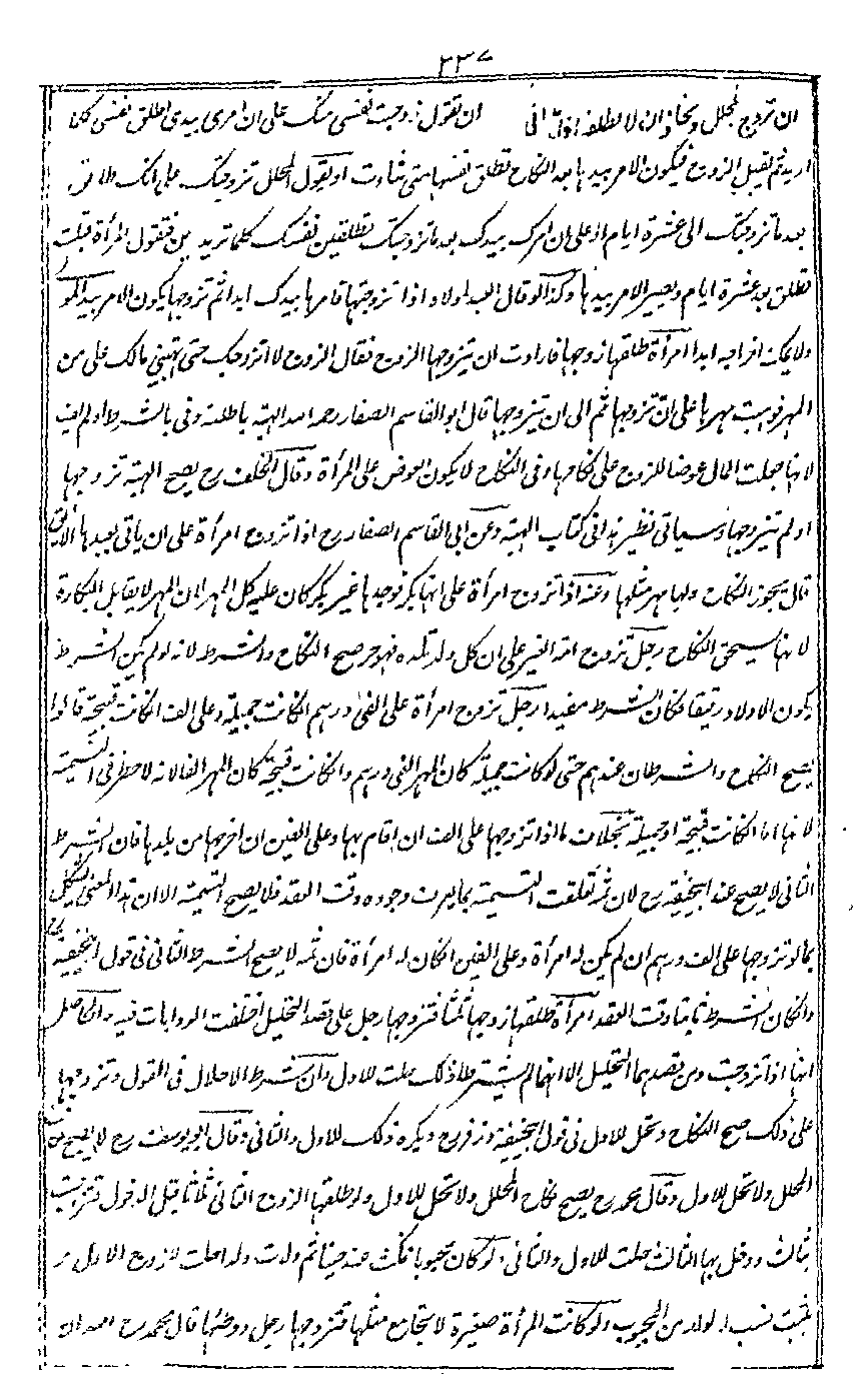 ٢٣٧
ان تزوج المحلل وتخاف ان لا يطلقها ان تقول زوجت نفسى منك على ان امرى بيدى اطلق نفسى كلما
اريد ثم يقبل الزوج فيكون الامر بيدها بعد النكاح تطلق نفسها متى شاءت او يقول المحلل تزوجتك على انك طالق
بعد ما تزوجتك الى عشرة ايام او على ان امرك بيدك بعد ما تزوجتك تطلقين نفسك كلما تريدين فتقول المرأة قبلت
تطلق بعد عشرة ايام ويصير الامر بيدها وكذا لو قال العبد لمولاه اذا تزوجتها فامرها بيدك ابدا ثم تزوجها يكون الامر بيد المولى
ولا يمكنه اخراجه ابدا امرأة طلقها زوجها فارادت ان يتزوجها الزوج فقال الزوج لا اتزوجك حتى تهبينى مالك على من
المهر فوهبت مهرها على ان تزوجها ثم ابى ان يتزوجها قال ابو القاسم الصفار رحمه الله الهبة باطلة وفى بالشرط او لم يف
لانها جعلت المال عوضا للزوج على نكاحها وفى النكاح لا يكون العوض على المرأة وقال الخلف رح يصح الهبة تزوجها
او لم يتزوجها وسياتى نظير هذا فى كتاب الهبة وعن ابى القاسم الصفار رح اذا تزوج امرأة على ان ياتى بعبدها الآبق
قال يجوز النكاح ولها مهر مثلها وعنه اذا تزوج امرأة على انها بكر فوجدها غير بكر كان عليه كل المهر لان المهر لا يقابل البكارة
لانها يستحق النكاح رجل تزوج امة الغير على ان كل ولد تلده فهو حر صح النكاح والشرط لانه لو لم يكن الشرط
يكون الاولاد رقيقا فكان الشرط مفيدا رجل تزوج امرأة على الفى درهم ان كانت جميلة وعلى الف ان كانت قبيحة قالوا
يصح النكاح والشرطان عندهم حتى لو كانت جميلة كان المهر الفى درهم وان كانت قبيحة كان المهر الفا لانه لا خطر فى التسمية
لانها اما ان كانت قبيحة او جميلة بخلاف ما اذا تزوجها على الف ان اقام بها وعلى الفين ان اخرجها من بلدها فان الشرط
الثانى لا يصح عند ابى حنيفة رح لان ثمه تعلقت التسمية بما يعرف وجوده وقت العقد فلا يصح التسمية الا ان هذا المعنى يشكل
بما لو تزوجها على الف درهم ان لم يكن له امرأة وعلى الفين ان كان له امرأة فان ثمه لا يصح الشرط الثانى فى قول ابى حنيفة رح
وان كان الشرط ثابتا وقت العقد امرأة طلقها زوجها ثلثا فتزوجها رجل على قصد التحليل اختلفت الروايات فيه والحاصل
انها اذا تزوجت ومن قصدهما التحليل الا انهما لم يشترطا ذلك حلت للاول وان شرط الاحلال فى القول وتزوجها
على ذلك صح النكاح وتحل للاول فى قول ابى حنيفة وزفر رح ويكره ذلك للاول والثانى وقال ابو يوسف رح لا يصح نكاح
المحلل ولا تحل للاول وقال محمد رح يصح نكاح المحلل ولا تحل للاول ولو طلقها الزوج الثانى ثلثا قبل الدخول فتزوجت
بثالث ودخل بها الثالث حلت للاول والثانى ولو كان مجبوبا فمكثت عنده حينا ثم ولدت ولدا حلت للزوج الاول و
يثبت نسب الولد من المجبوب ولو كانت المرأة صغيرة لا يجامع مثلها فتزوجها رجل ووطئها قال محمد رح ان